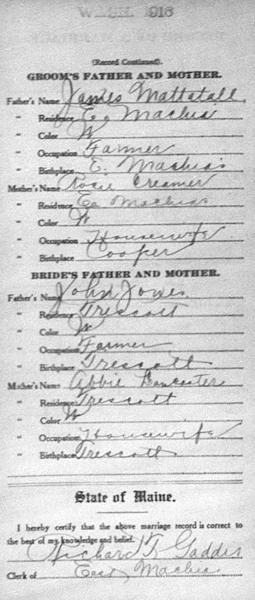 WASH. 1916
(Record Continued).
GROOM'S FATHER AND MOTHER.
Father's Name James Mattatall
" Residence Ea Machias
" Color W
" Occupation Farmer
" Birthplace E. Machias
Mother's Name Rosie Creamer
" Residence Ea Machias
" Color W
" Occupation Housewife
" Birthplace Cooper
BRIDE'S FATHER AND MOTHER.
Father's Name John Jones
" Residence Trescott
" Color W
" Occupation Farmer
" Birthplace Trescott
Mother's Name Abbie Lancaster
" Residence Trescott
" Color W
" Occupation Housewife
" Birthplace Trescott
State of Maine.
I hereby certify that the above marriage record is correct to
the best of my knowledge and belief.
Richard T. Gaddis
Clerk of East Machias